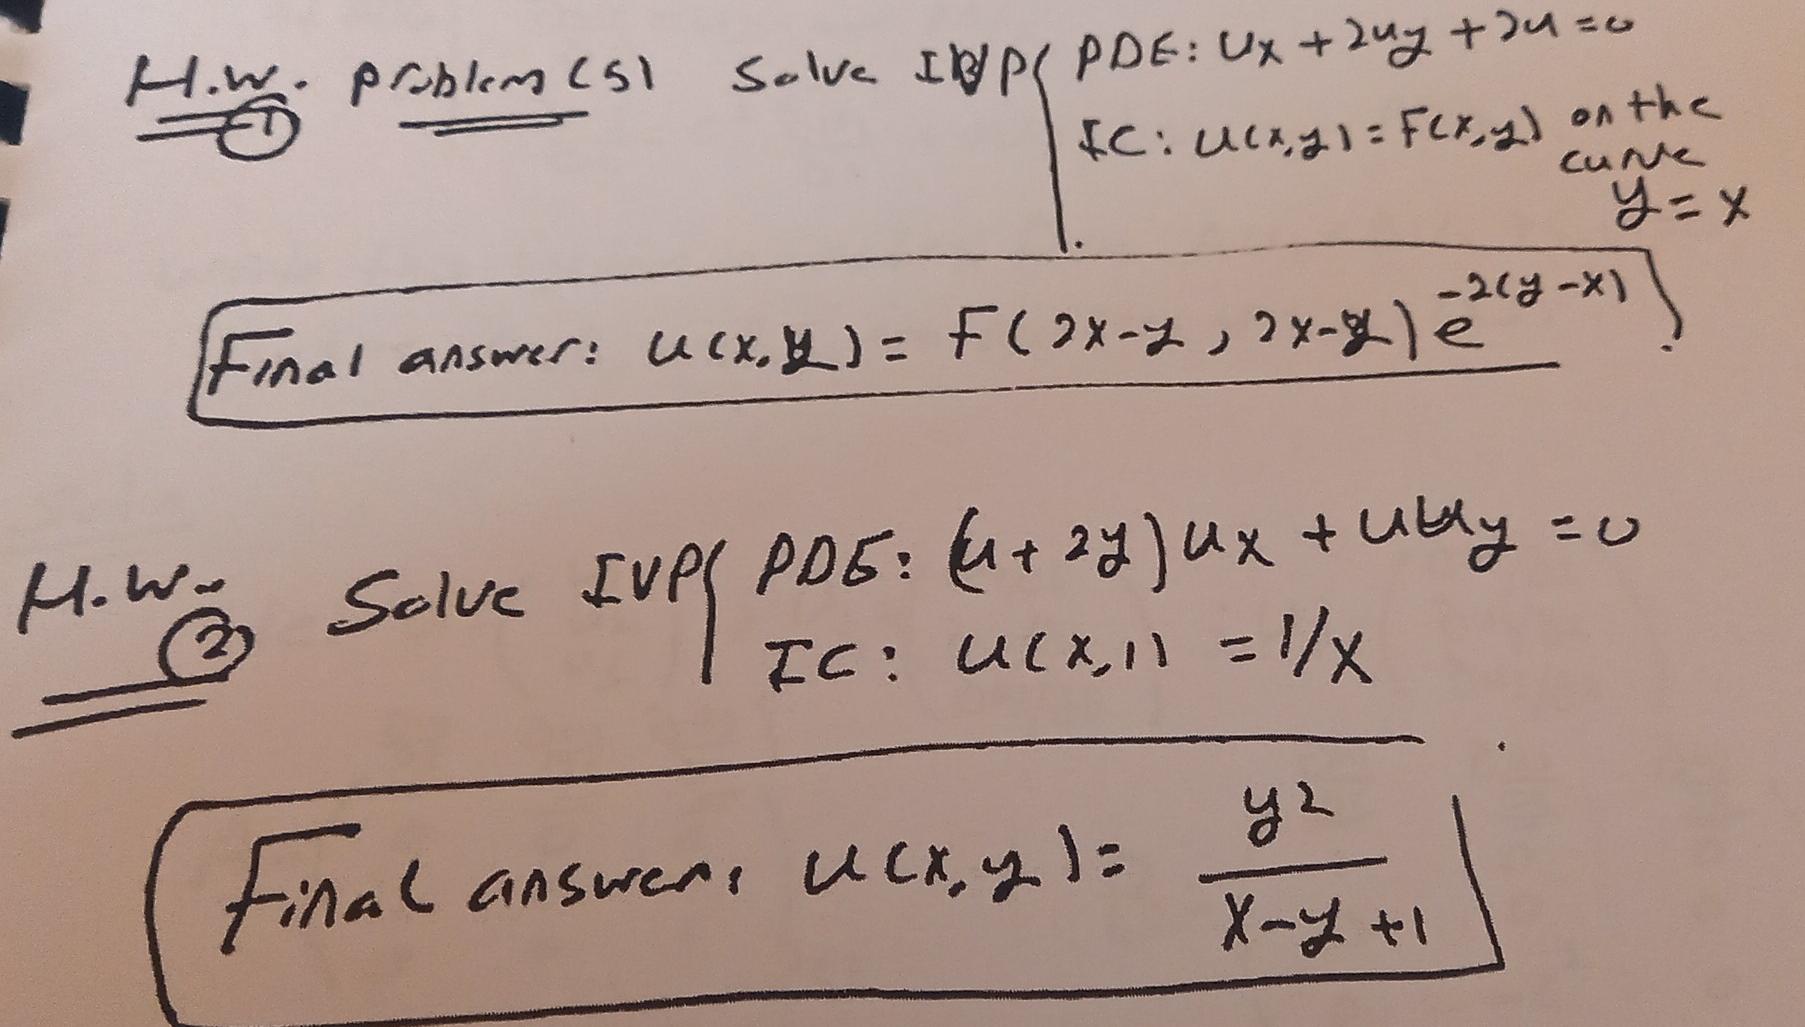 H.W. ① problem(s) Solve IVP{ PDE: Ux + 2uy + 2u = 0
IC: u(x,y) = F(x,y) on the curve
y = x
Final answer: u(x,y) = F(2x-y, 2x-y) e^{-2(y-x)}
H.W. ② Solve IVP{ PDE: (u + 2y) ux + u uy = 0
IC: u(x,1) = 1/x
Final answer: u(x,y) = y²/(x-y+1)